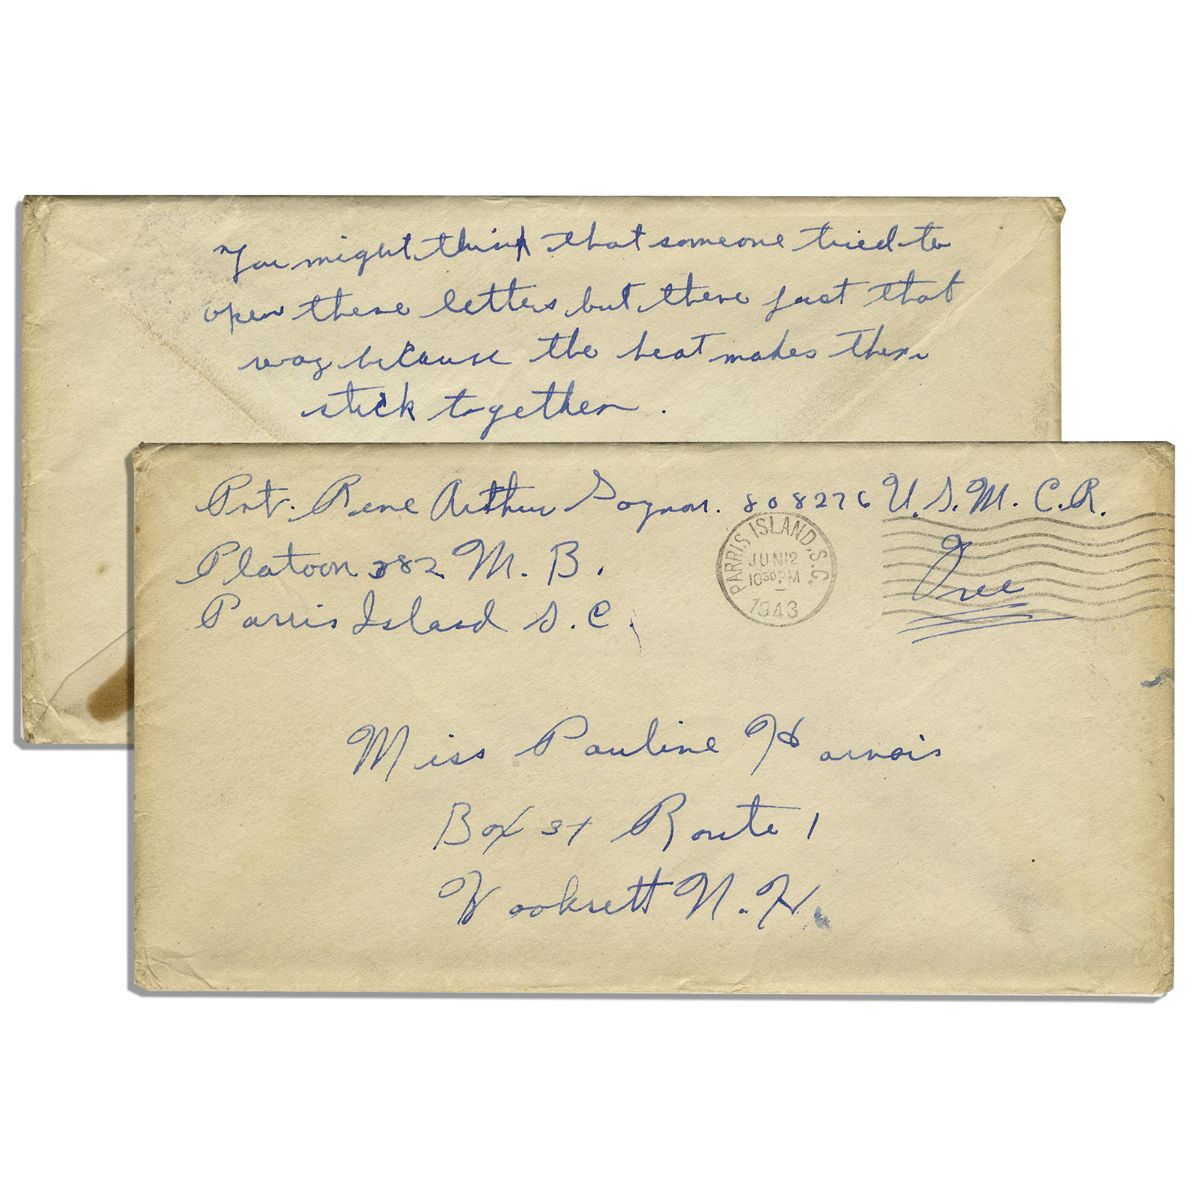 You might think that someone tried to
open these letters but there just that
way because the heat makes them
stick together.
Pvt. Rene Arthur Gagnon. 808276 U.S.M.C.R.
Platoon 382 M.B.
Parris Island S.C.
PARRIS ISLAND, S.C.
JUN 12
10 30 PM
1943
Free
Miss Pauline Harnois
Box 31 Route 1
Hooksett N.H.